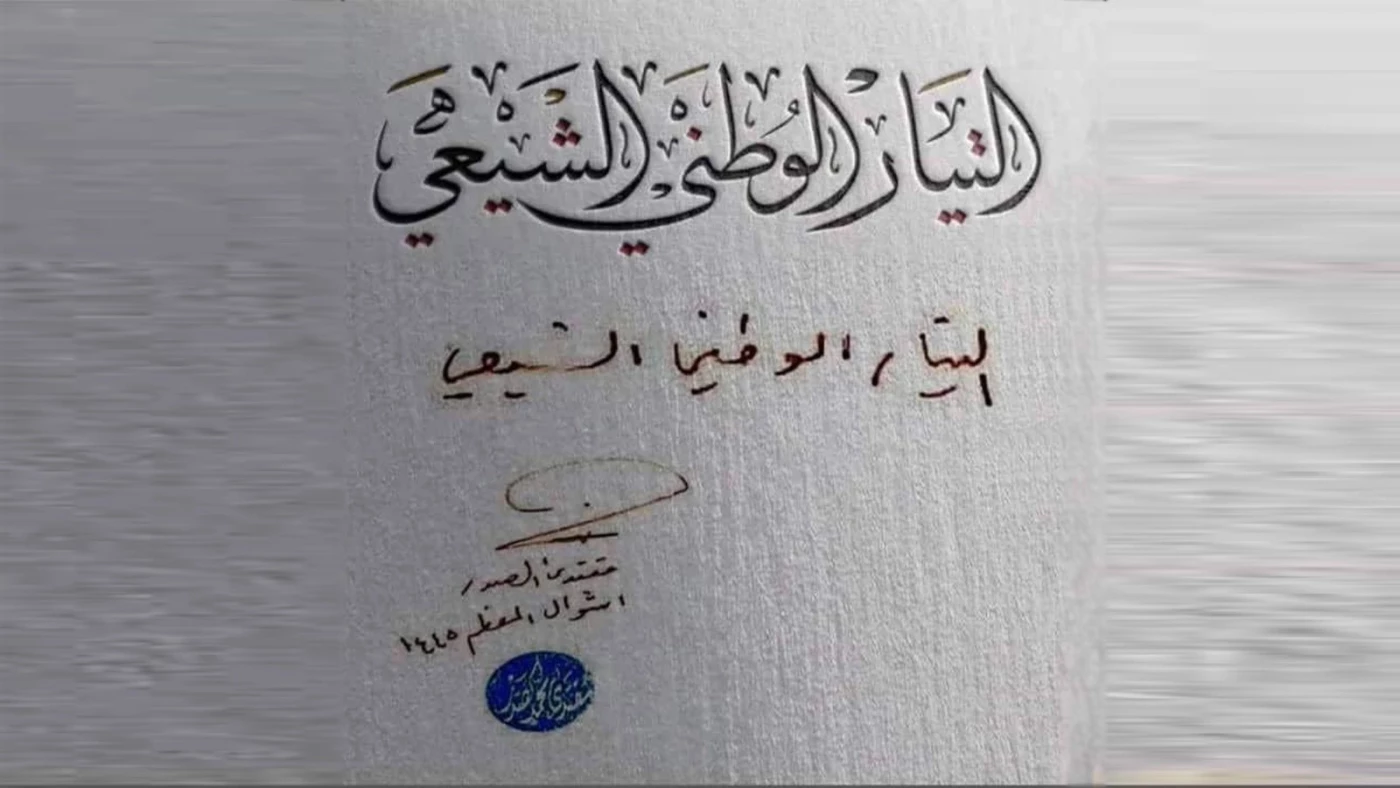 التَيَّارُ الوَطَنيّ الشِيَعيّ
التيار الوطني الشيعي
مقتدى الصدر
١ شوال المعظم ١٤٤٥
مقتدى محمد الصدر